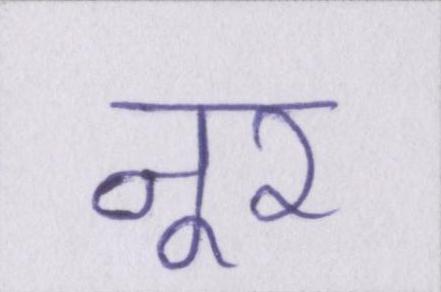 नूर